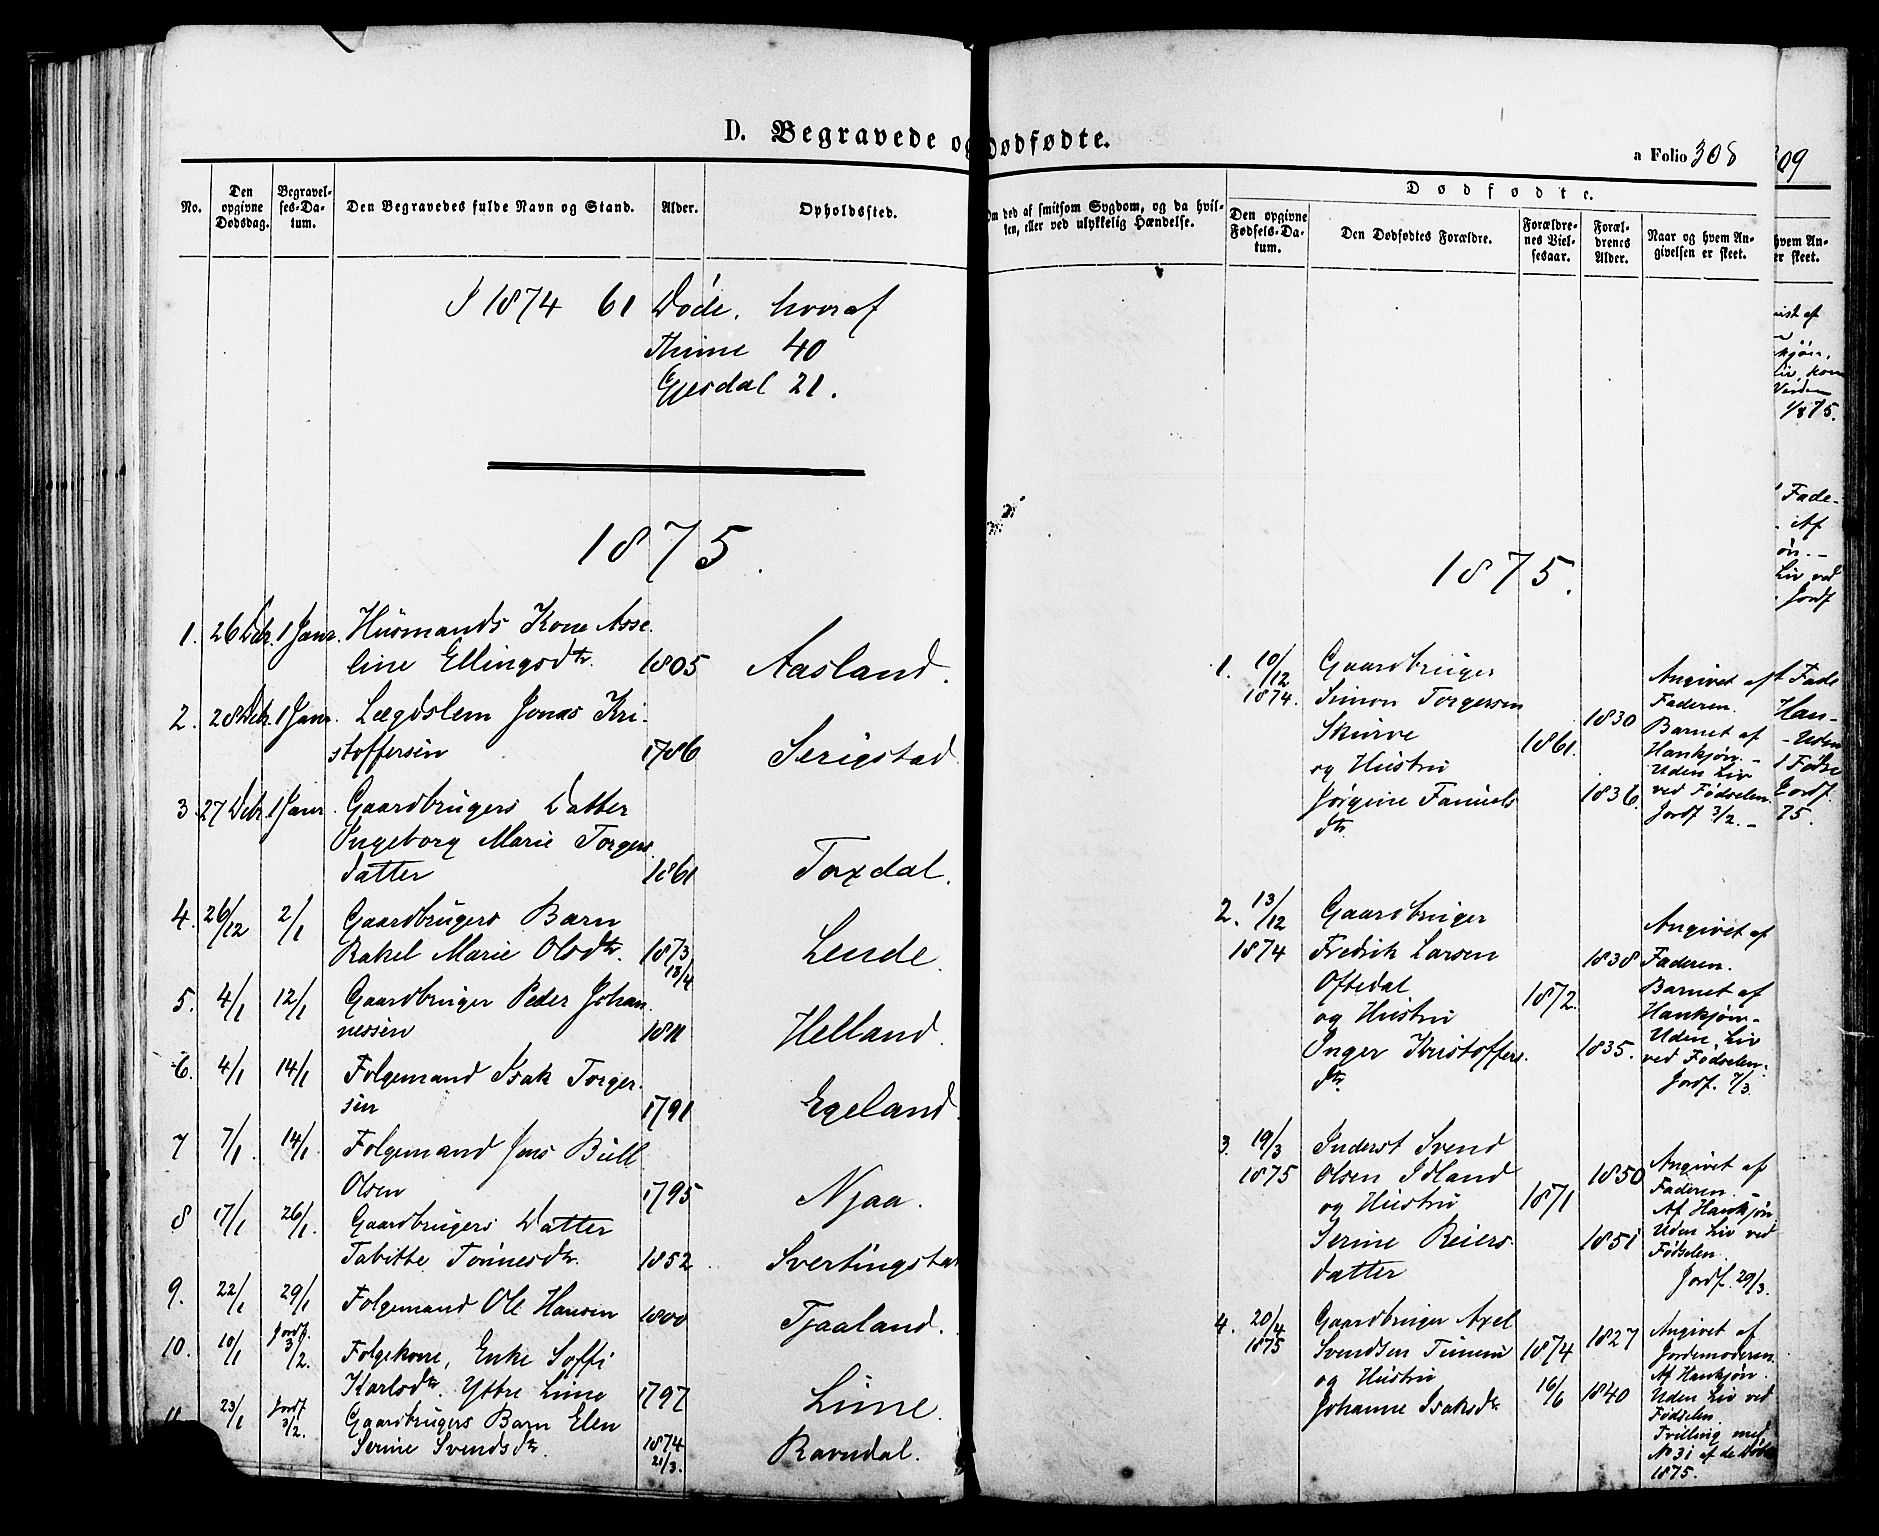 D. Begravede og Dødfødte.
a Folio 308
309
No.
Den opgivne Dødsdag.
Begravelses-Datum.
Den Begravedes fulde Navn og Stand.
Alder.
Opholdssted.
Om død af smitsom Sygdom, og da hvilken, eller ved ulykkelig Hændelse.
Dødfødte.
Den opgivne Fødsels-Datum.
Den Dødfødtes Forældre.
Forældrenes Vielsesaar.
Forældrenes Alder.
Naar og hvem Angivelsen er skeet.
hvem An-
er skeet.
I 1874 61 Døde, hvoraf
Thime 40
Gjesdal 21.
1875.
1. 26 Debr. 1 Janr. Huusmands Kone Asse-
line Ellingsdtr. 1805 Aasland.
2. 28 Debr. 1 Janr. Lægdslem Jonas Kri-
stoffersen 1786 Serigstad
3. 27 Debr. 1 Janr. Gaardbrugers Datter
Ingeborg Marie Torgers
datter 1861 Toxdal.
4. 26/12 2/1 Gaardbrugers Barn
Rakel Marie Olsdtr. 1873 18/4 Lende.
5. 4/1 12/1 Gaardbruger Peder Johan
nessen 1811 Helland.
6. 4/1 14/1 Folgemand Isak Torger-
sen 1791 Egeland.
7 7/1. 14/1. Folgemand Jens Bull
Olsen 1795 Njaa.
8 17/1 26/1. Gaardbrugers Datter
Tabitte Tønnesdtr. 1852. Svertingstad
9. 22/1 29/1 Folgemand Ole Hansen 1800 Tjaaland.
10. 10/1 Jordf. 3/2. Folgekone, Enke Soffi
Karlsdtr. Yttre Lime 1797 Lime.
11 23/1 Jordf 3/2. Gaardbrugers Barn Elen
Serine Svendsdtr. 1874 21/3. Ravndal.
1875.
1. 10/12 1874. Gaardbruger
Simon Torgersen
Skurve
og Hustru
Jørgine Tanuels
dtr.
1861.
1830
1836.
Angivet af
Faderen.
Barnet af
Hankjøn. -
Uden Liv
ved Fødselen.
Jordf 3/2. -
2. 13/12 1874 Gaardbruger
Fredrik Larsen
Oftedal
og Hustru
Inger Kristoffers.
dtr.
1872.
1838
1835.
Angivet af
Faderen.
Barnet af
Hankjøn-
Uden Liv
ved Fødselen.
Jordf. 7/3.
3. 19/3 1875 Inderst Svend
Olsen Idland
og Hustru
Serine Reiers-
datter
1871
1850
1851
Angivet af
Faderen. -
Af Hankjøn
Uden Liv ved
Fødselen.
Jordf. 29/3.
4. 20/4 1875 Gaardbruger Axel
Svendsen Tunem
og Hustru
Johanne Isaksdtr
1874
16/6
1827
1840
Angivet af
Jordemoderen.
Af Hankjøn.
Uden Liv ved
Fødselen.
Tvilling med
No 31 af de Døde
1875.
kjøn.
Liv, kom
Verden
1/8 75.
Fade-
Af
øn. -
Liv ved
Jordf
Fade
Han-
- Uden
Fødse
Jordf.
75.